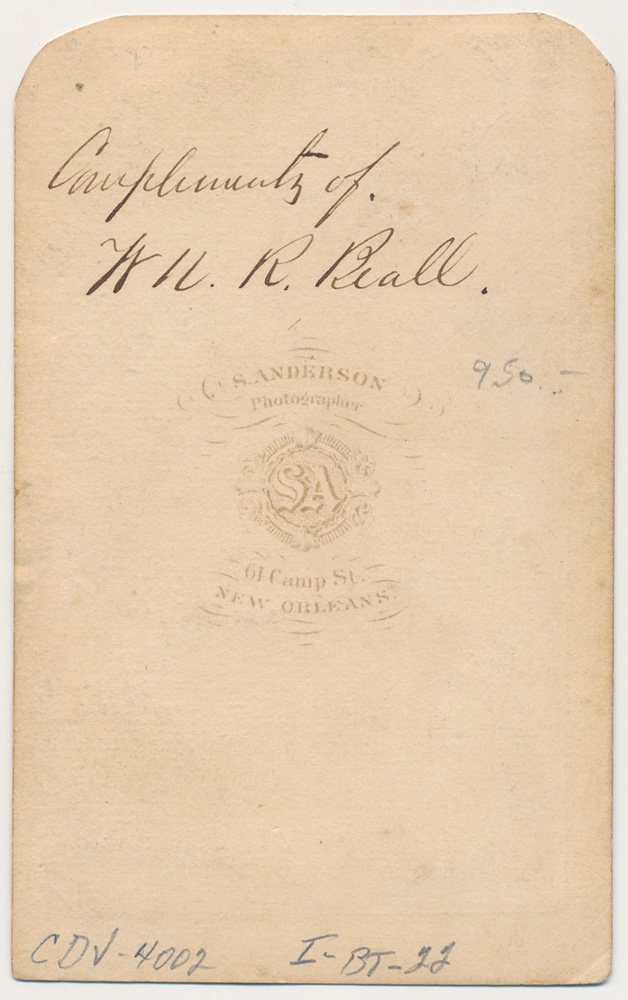 Compliments of.
W N. R. Beall.
950.-
S. ANDERSON
Photographer
SA
61 Camp St.
NEW ORLEANS.
CDV-4002 I-BT-22